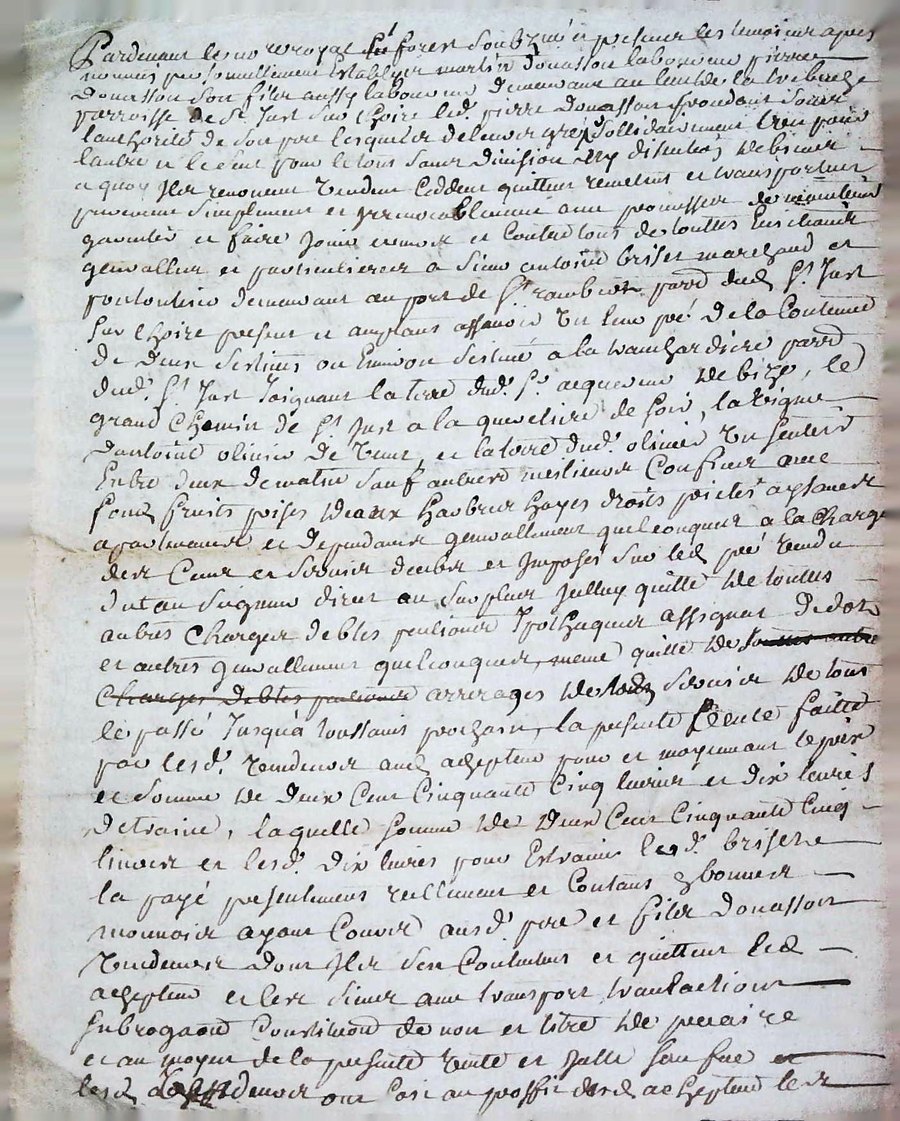 Pardevant le no.re royal en forez soubz.né et presence les temoins apres
nommes personnellement establys martin donasson laboureur pierre
donasson son fils aussy laboureur demeurant au lieu de la
parroisse de St Just sur Loire led. pierre donasson
lauthorité de son pere lesquels de leur gré sollidairement l'un pour
lautre et le seul pour le tous sans division ny discution de biens
a quoy ils renoncent vendent ceddent quittent remettent et transportent
purement simplement et irrevocablement avec promesses de maintenir
garentir et faire jouir envers et contre tous de touttes
generalles et particulieres a sieur antoine briset marchand et
demeurant au port de St rambert parr. dud. St Just
sur Loire present et aceptant assavoir un pré de la contenue
de deux sestines ou environ situé a la parr.
dud. St Just joignant la terre dud. Sr acquereur de bize, le
grand chemin de St Just a la de soir, la vigne
dantoine olinier de vent, et la terre dud. olinier un sentier
entre deux de matin sauf autres meilleurs confins avec
fruits prises deaux haybres hayes droits aysances
apartenances et dependances generallement quelconques a la charge
des cens et servis deubs et imposés sur led. pré vendu
dut au seigneur direct au surplus quitte de touttes
autres charges debtes pentions ypotheques assignat de dotz
et autres generallement quelconques, meme quitte de touttes autre
charges debtes pentions arrerages de servis de tout
le passé jusqua toussaints prochain, la presente vente faitte
par lesd. vendeurs aud. achepteur pour et moyennant le prix
et somme de deux cent cinquante cinq livres et dix livres
detraine, laquelle somme de deux cent cinquante cinq
livres et lesd. dix livres pour estraine led. briset
la payé presentement reellement et contant en bonnes
monnoies ayant cours ausd. pere et fils donasson
vendeurs dont ils sen contentent et quittent led.
achepteur et les siens avec transport translation
subrogaon constituon de nom et titre de precaire
et au moyen de la presente vente et
lesd. vendeurs ont au proffit dud. achepteur